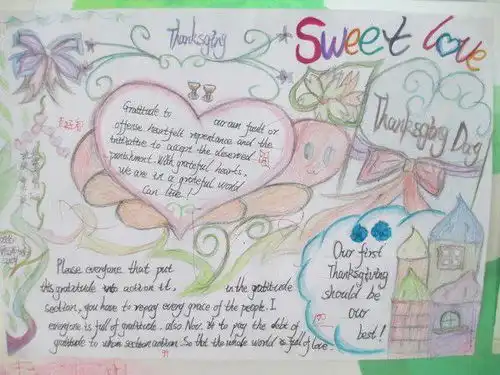 Thanksging
Sweet love
Thanksging Day
Gratitude to our own fault or
offense heartfelt repentance and the
initiative to accept the deserved
punishment. With grateful hearts.
we are in a grateful world
Can love!
Our first
Thanksgiving
should be
our
best!
Please everyone that put
this gratitude into action it, in the gratitude
section, you have to repay every grace of the people. I
everyone is full of gratitude. also Nov. it to pay the debt of
gratitude to whom section action. So that the whole world is full of love.